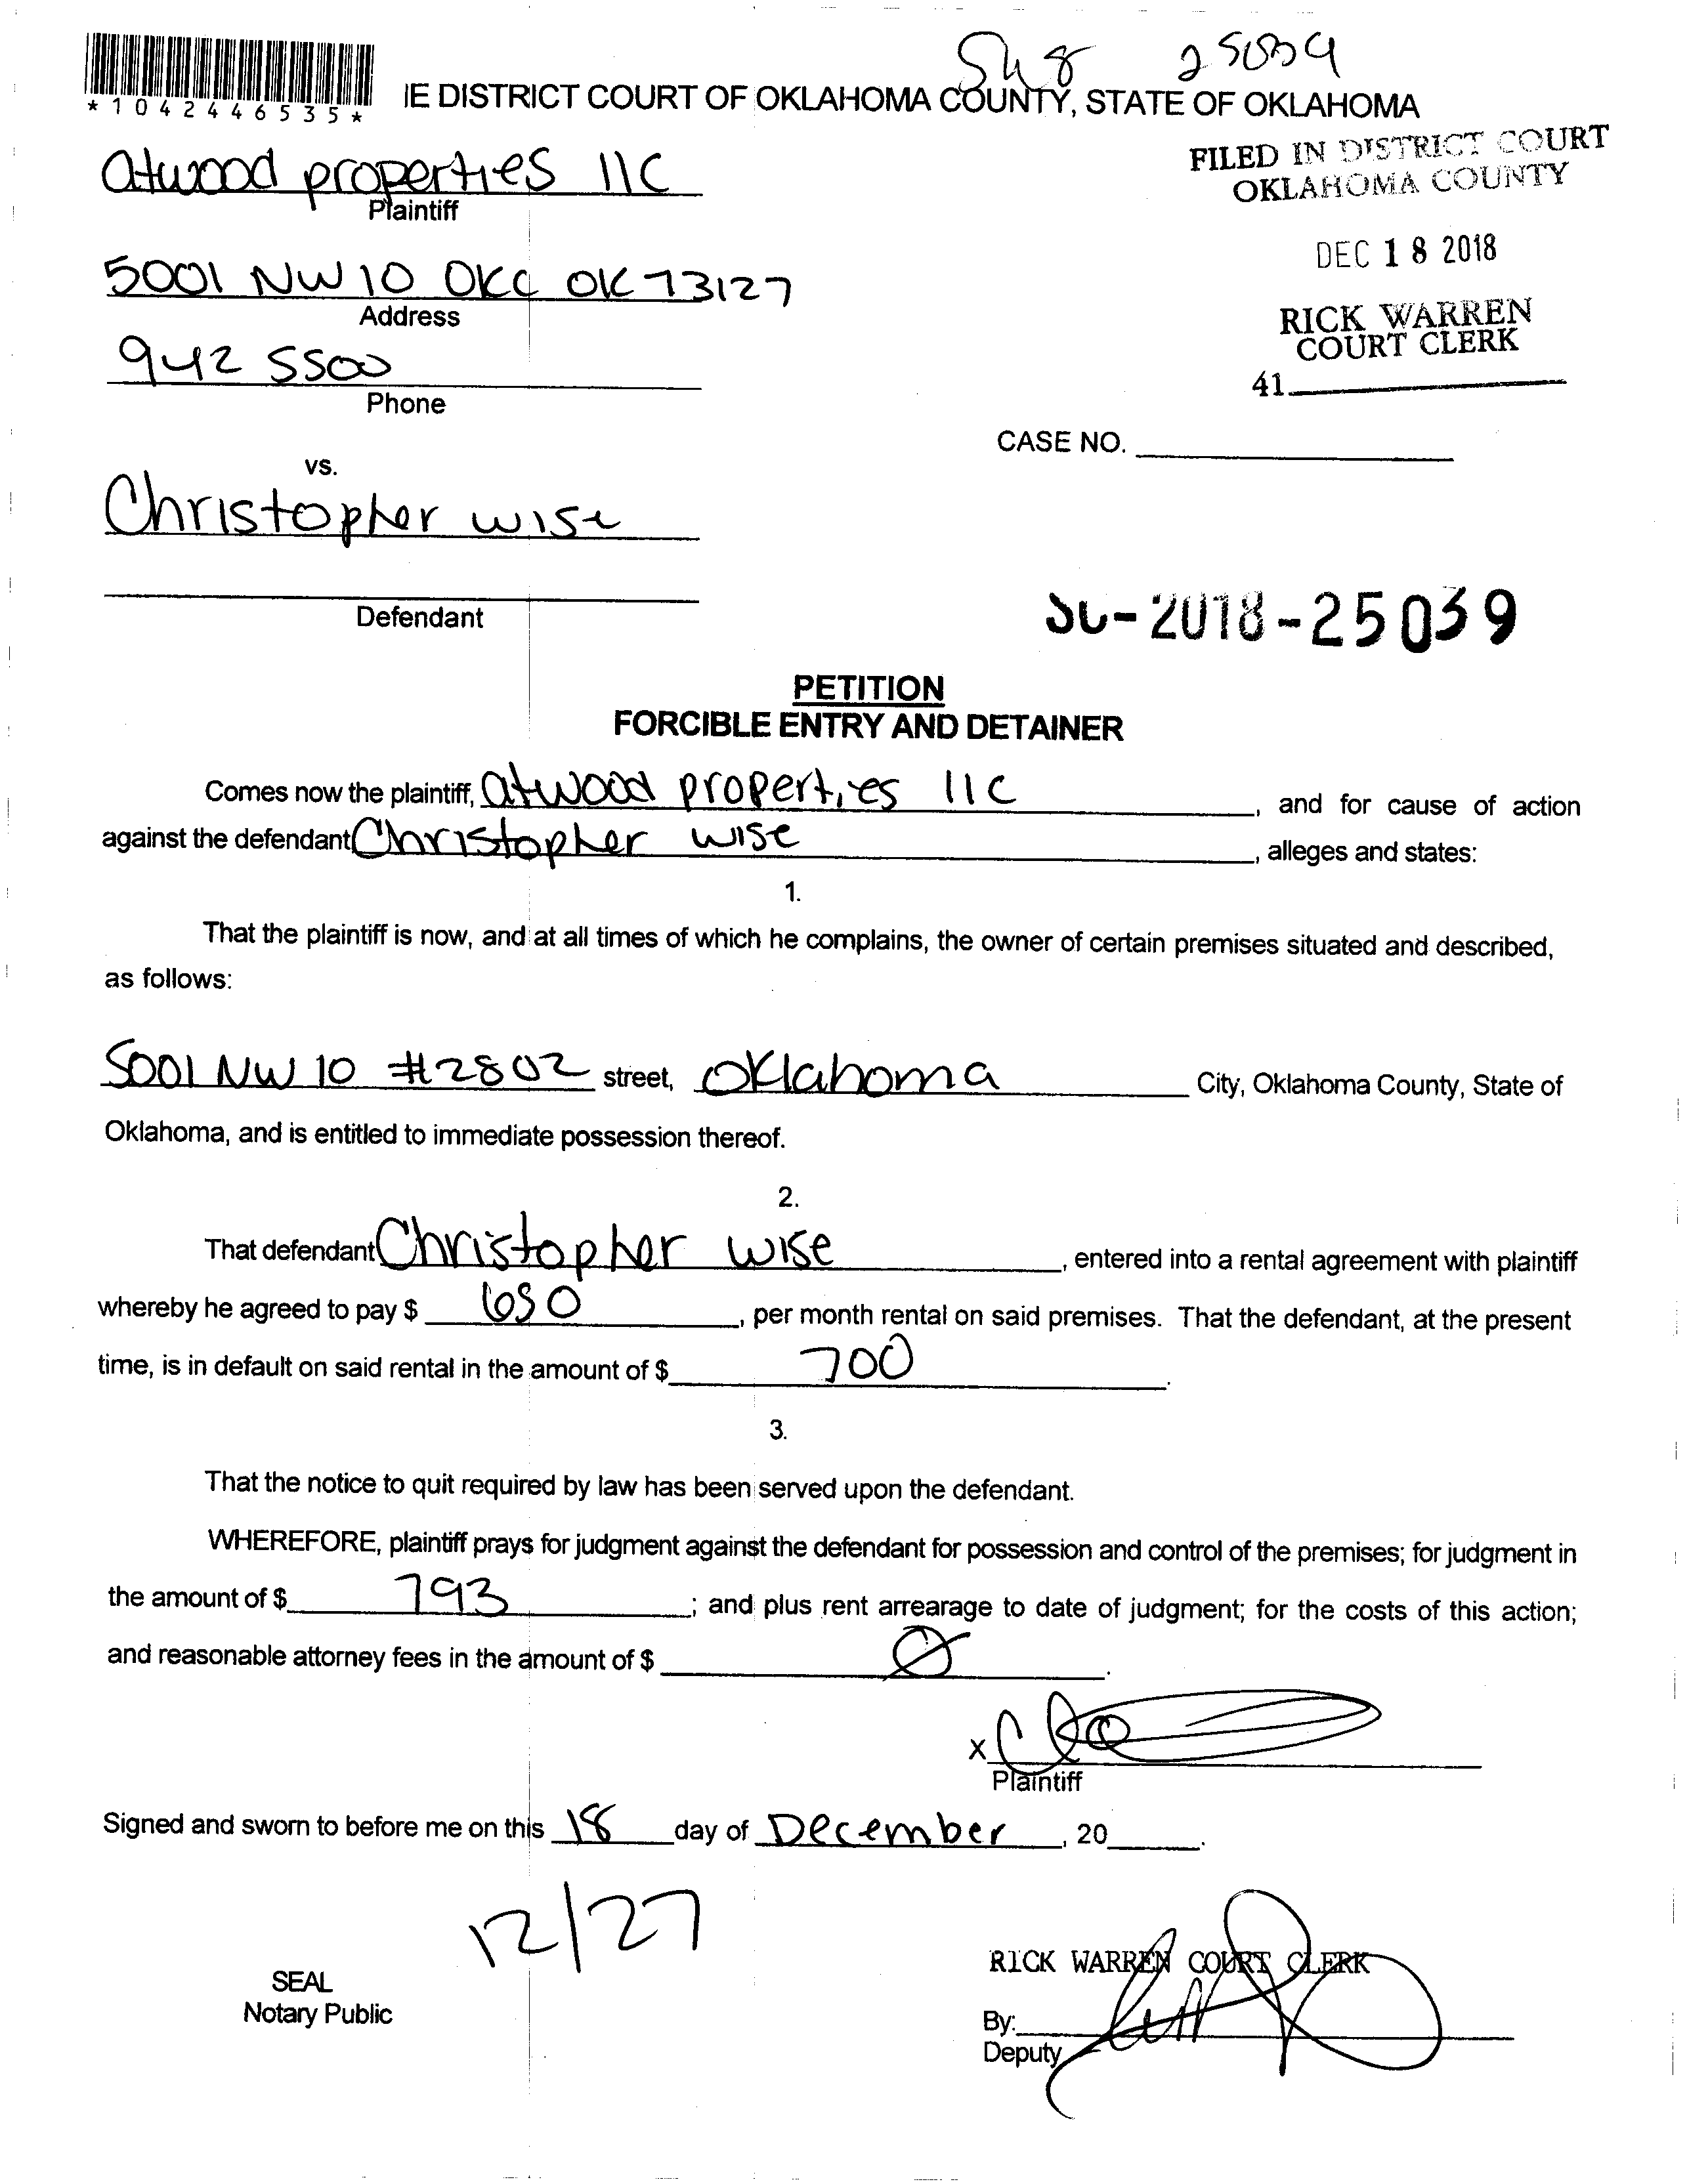 25039
*1042446535*
IE DISTRICT COURT OF OKLAHOMA COUNTY, STATE OF OKLAHOMA
FILED IN DISTRICT COURT
OKLAHOMA COUNTY
DEC 18 2018
RICK WARREN
COURT CLERK
41
atwood properties llc
Plaintiff
5001 NW 10 OKC OK 73127
Address
942 5500
Phone
CASE NO.
vs.
Christopher wise
Defendant
SC-2018-25039
PETITION
FORCIBLE ENTRY AND DETAINER
Comes now the plaintiff, atwood properties llc, and for cause of action
against the defendant Christopher wise, alleges and states:
1.
That the plaintiff is now, and at all times of which he complains, the owner of certain premises situated and described,
as follows:
5001 NW 10 #2802 street, Oklahoma City, Oklahoma County, State of
Oklahoma, and is entitled to immediate possession thereof.
2.
That defendant Christopher wise, entered into a rental agreement with plaintiff
whereby he agreed to pay $ 650, per month rental on said premises. That the defendant, at the present
time, is in default on said rental in the amount of $ 700.
3.
That the notice to quit required by law has been served upon the defendant.
WHEREFORE, plaintiff prays for judgment against the defendant for possession and control of the premises; for judgment in
the amount of $ 793; and plus rent arrearage to date of judgment; for the costs of this action;
and reasonable attorney fees in the amount of $ Ø.
x
Plaintiff
Signed and sworn to before me on this 18 day of December, 20 .
12/27
SEAL
Notary Public
RICK WARREN COURT CLERK
By:
Deputy